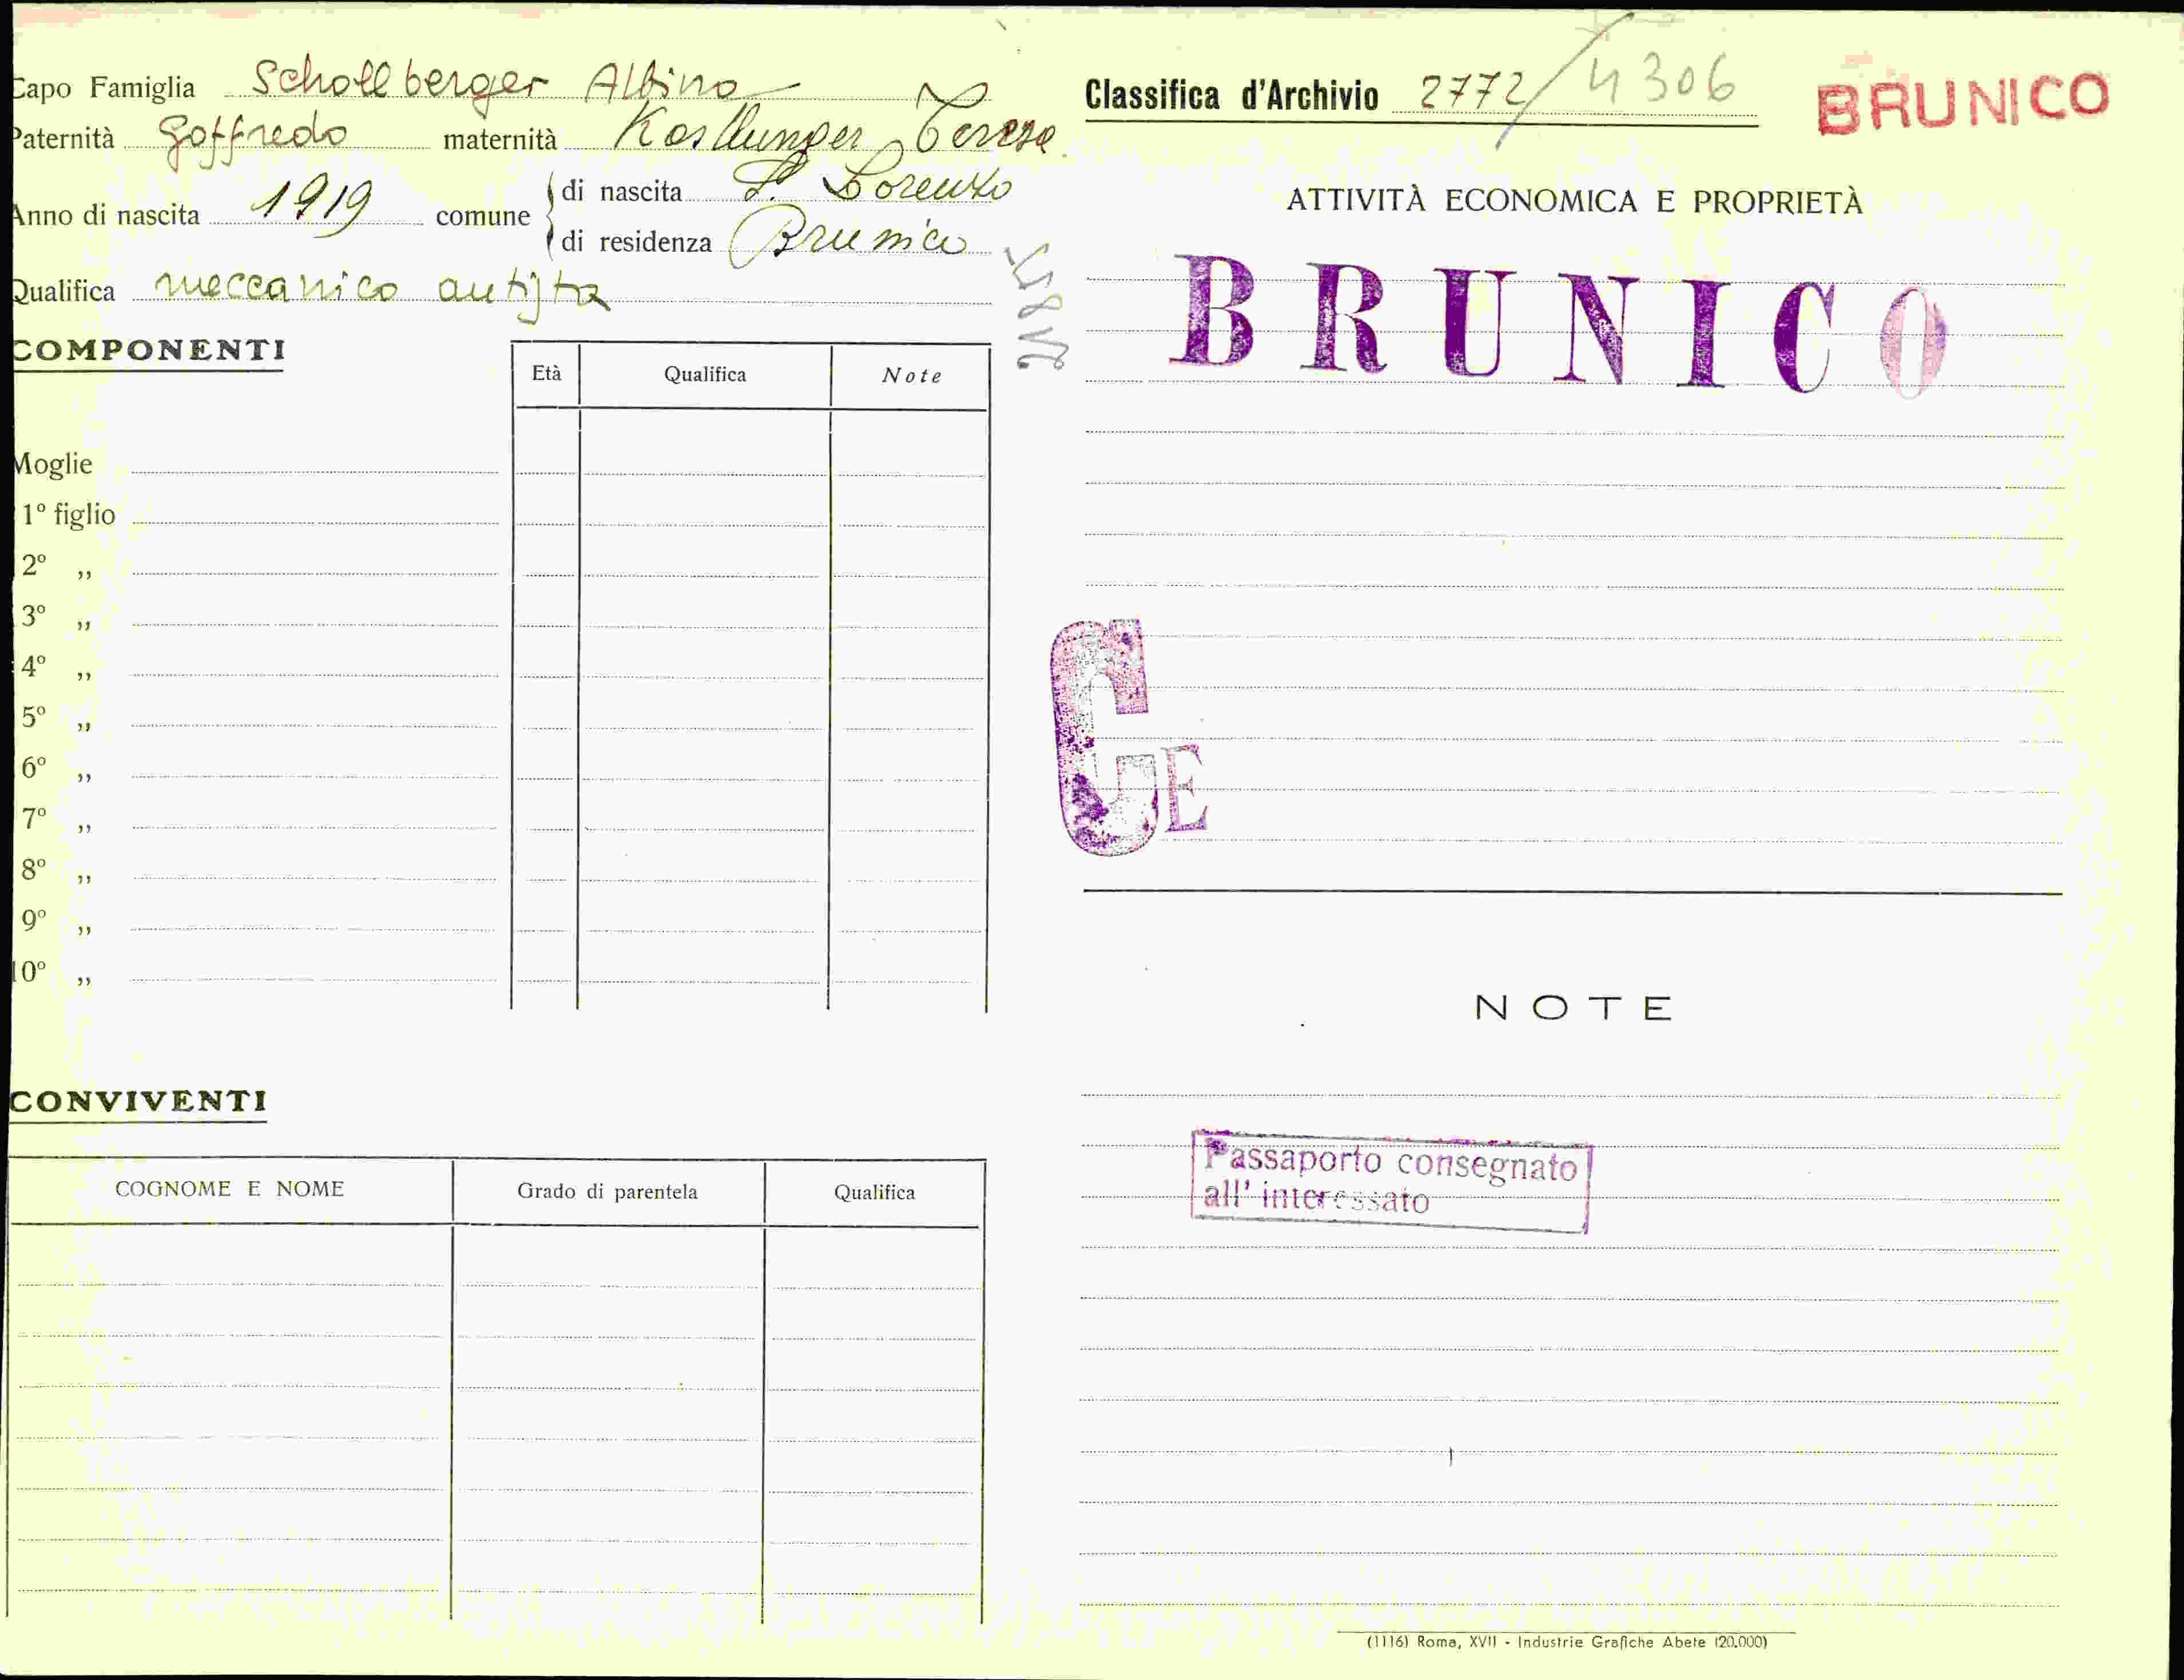 Capo Famiglia Schollberger Albino
Paternità Goffredo maternità Kosllunger Teresa
Anno di nascita 1919 comune di nascita S. Lorenzo
di residenza Brunico
Qualifica meccanico autista
COMPONENTI
Età Qualifica Note
Moglie
1º figlio
2º ,,
3º ,,
4º ,,
5º ,,
6º ,,
7º ,,
8º ,,
9º ,,
10º ,,
CONVIVENTI
COGNOME E NOME Grado di parentela Qualifica
Classifica d'Archivio 2772/4306 BRUNICO
ATTIVITÀ ECONOMICA E PROPRIETÀ
BRUNICO
GE
NOTE
Passaporto consegnato
all' interessato
(1116) Roma, XVII - Industrie Grafiche Abete (20.000)